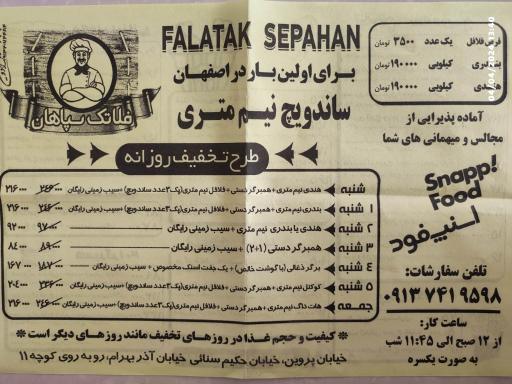 FALATAK SEPAHAN
برای اولین بار در اصفهان
ساندویچ نیم متری
فلاتک سپاهان
قرص فلافل یک عدد ۳۵۰۰ تومان
بندری کیلویی ۱۹۰۰۰۰ تومان
هندی کیلویی ۱۹۰۰۰۰ تومان
آماده پذیرایی از
مجالس و میهمانی های شما
Snapp!
Food
اسنپ فود
تلفن سفارشات:
0913 741 9598
ساعت کار:
از ۱۲ صبح الی ۱۱:۴۵ شب
به صورت یکسره
طرح تخفیف روزانه
شنبه هندی نیم متری + همبرگر دستی + فلافل نیم متری (یک ۳ عدد ساندویچ) + سیب زمینی رایگان ۲۴۶۰۰۰ ۲۱۶۰۰۰
۱ شنبه بندری نیم متری + همبرگر دستی + فلافل نیم متری (یک ۳ عدد ساندویچ) + سیب زمینی رایگان ۲۴۶۰۰۰ ۲۱۶۰۰۰
۲ شنبه هندی یا بندری نیم متری + سیب زمینی رایگان ۹۷۰۰۰ ۹۲۰۰۰
۳ شنبه همبرگر دستی (۲+۱) + سیب زمینی رایگان ۸۹۰۰۰ ۸۴۰۰۰
۴ شنبه برگر ذغالی (با گوشت خالص) + یک هفت استک مخصوص + سیب زمینی رایگان ۱۸۷۰۰۰ ۱۶۷۰۰۰
۵ شنبه کوکتل نیم متری + همبرگر دستی + فلافل نیم متری (یک ۳ عدد ساندویچ) + سیب زمینی رایگان
جمعه هات داگ نیم متری + همبرگر دستی + فلافل نیم متری (یک ۳ عدد ساندویچ) + سیب زمینی رایگان
* کیفیت و حجم غذا در روزهای تخفیف مانند روزهای دیگر است *
خیابان پروین، خیابان حکیم سنائی خیابان آذر بهرام، رو به روی کوچه ۱۱